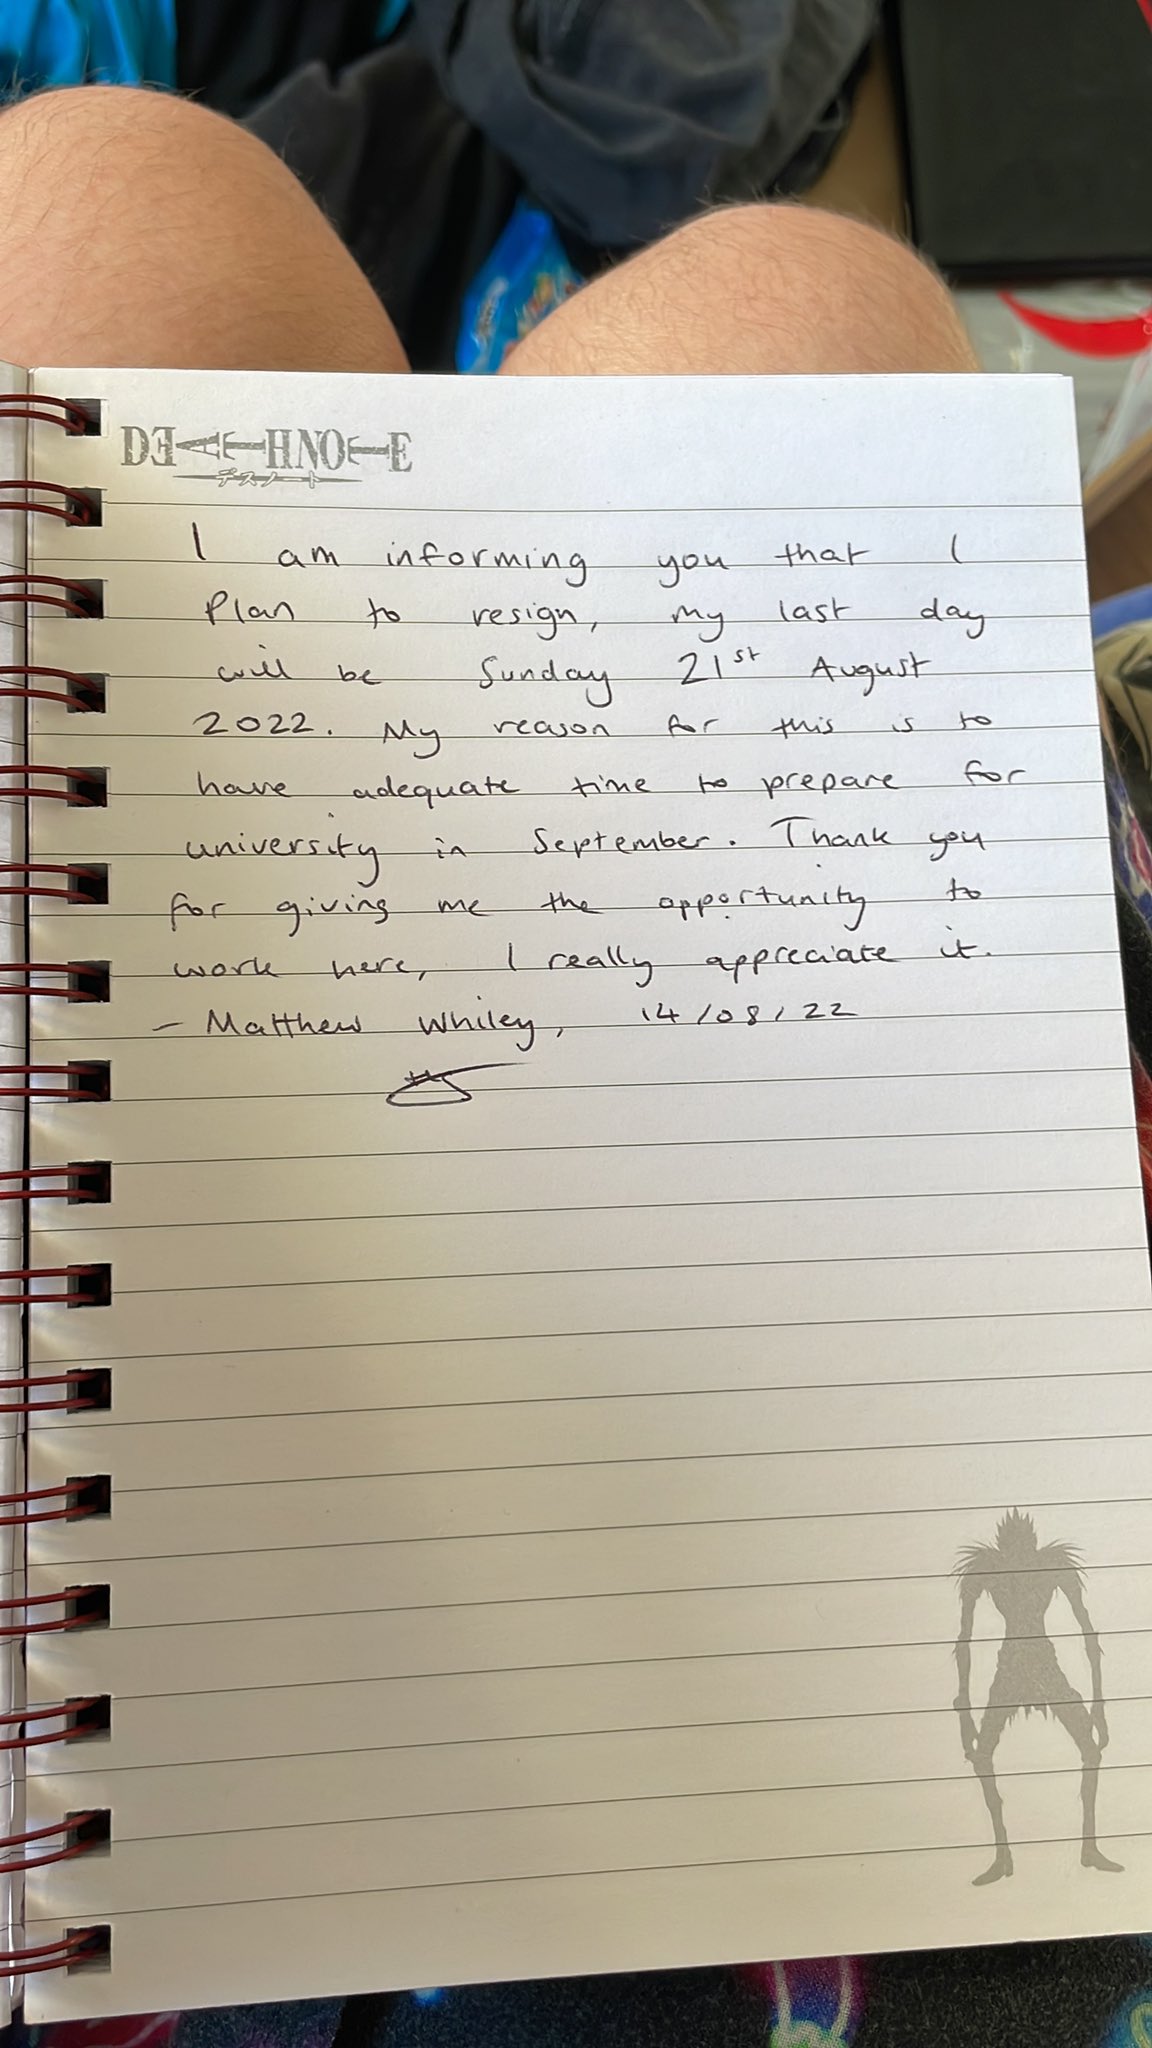 DEATH NOTE
デスノート
I am informing you that I
Plan to resign, my last day
will be Sunday 21st August
2022. My reason for this is to
have adequate time to prepare for
university in September. Thank you
for giving me the opportunity to
work here, I really appreciate it.
- Matthew Whiley, 14/08/22